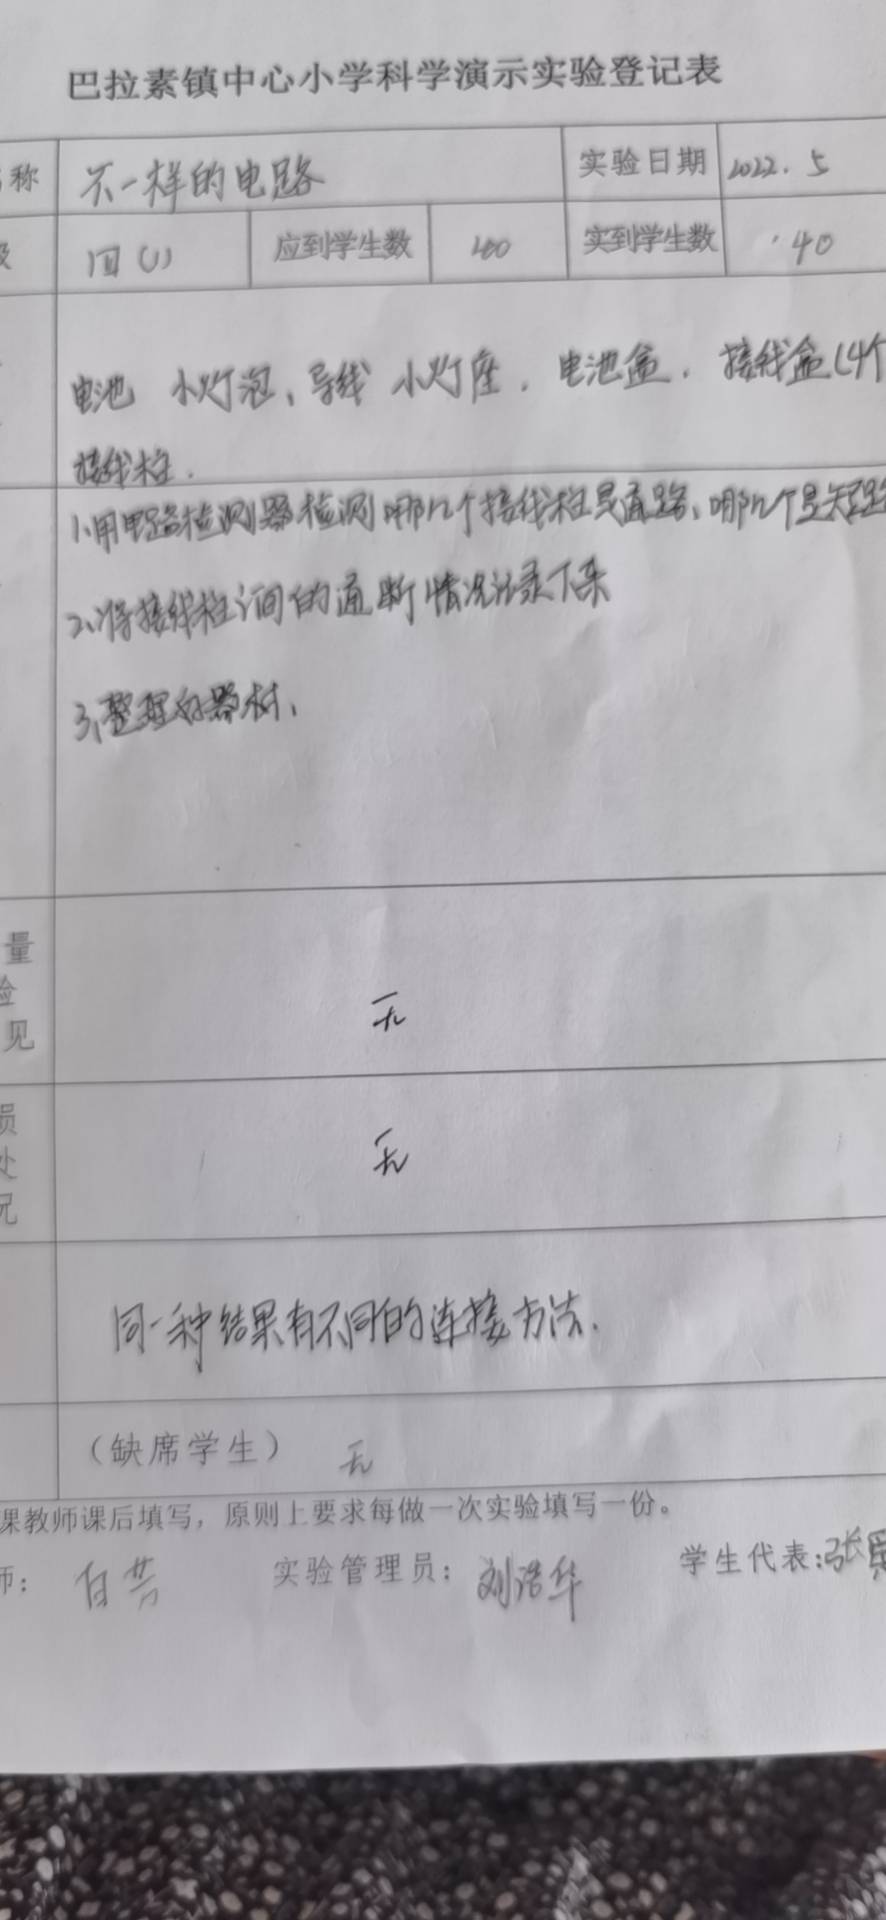 巴拉素镇中心小学科学演示实验登记表
称 不一样的电路 实验日期 2022.5
级 四(1) 应到学生数 40 实到学生数 40
电池 小灯泡、导线 小灯座.电池盒.接线盒(4个
接线柱.
1.用电路检测器检测哪几个接线柱是通路、哪几个是短路
2、将接线柱间的通断情况记录下来
3、整理好器材、
量
验
见
无
损
处
况
无
同一种结果有不同的连接方法.
(缺席学生) 无
课教师课后填写，原则上要求每做一次实验填写一份。
师： 白芸 实验管理员： 刘浩华 学生代表:张